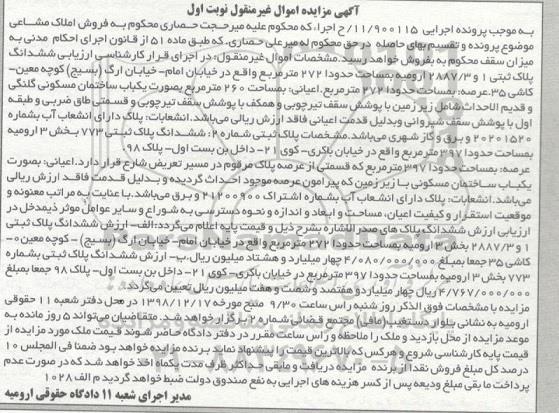 آگهی مزایده اموال غیرمنقول نوبت اول
به موجب پرونده اجرایی ۱۱/۹۰۰۱۱۵/ح اجرا، که محکوم علیه میرحجت حصاری محکوم به فروش املاک مشاعی
موضوع پرونده و تقسیم بهای حاصله در حق محکوم له میرعلی حصاری، که طبق ماده ۵۱ از قانون اجرای احکام مدنی به
میزان سقف محکوم به بفروش خواهد رسید. مشخصات اموال غیرمنقول: در اجرای قرار کارشناسی ارزیابی ششدانگ
پلاک ثبتی ۱ و ۲۸۸۷/۳ ارومیه بمساحت حدودا ۲۷۲ مترمربع واقع در خیابان امام- خیابان ارگ (بسیج) کوچه معین-
کاشی ۳۵. عرصه: بمساحت حدودا ۲۷۲ مترمربع. اعیانی: بمساحت ۲۶۰ مترمربع بصورت یکباب ساختمان مسکونی گلنگی
و قدیم الاحداث شامل زیرزمین با پوشش سقف تیرچوبی و همکف با پوشش سقف تیرچوبی و قسمتی طاق ضربی و طبقه
اول با پوشش سقف شیروانی وبدلیل قدمت اعیانی فاقد ارزش ریالی می باشد. انشعابات: پلاک دارای انشعاب آب بشماره
۲۰۲۰۱۵۲۰ و برق و گاز شهری می‌باشد. مشخصات پلاک ثبتی شماره ۲: ششدانگ پلاک ثبتی ۷۷۳ بخش ۳ ارومیه
بمساحت حدودا ۳۹۷ مترمربع واقع در خیابان باکری- کوی ۲۱- داخل بن بست اول- پلاک ۹۸.
عرصه: بمساحت حدودا ۳۹۷ مترمربع که قسمتی از عرصه پلاک مرقوم در مسیر تعریض شارع قرار دارد. اعیانی: بصورت
یکباب ساختمان مسکونی با زیرزمین که پیرامون عرصه موجود احداث گردیده و بدلیل قدمت فاقد ارزش ریالی
می‌باشد. انشعابات: پلاک دارای انشعاب آب بشماره اشتراک ۲۱۲۰۰۹۰۰ و برق می‌باشد. با عنایت به مراتب معنونه و
موقعیت استقرار و کیفیت اعیان، مساحت و ابعاد و اندازه و نحوه دسترسی به شوارع و سایر عوامل موثر ذیمدخل در
ارزیابی ارزش ششدانگ پلاک های صدرالاشاره بشرح ذیل و قیمت پایه اعلام می‌گردد: الف- ارزش ششدانگ پلاک ثبتی
۱ و ۲۸۸۷/۳ بخش ۳ ارومیه بمساحت حدودا ۲۷۲ مترمربع واقع در خیابان امام- خیابان ارگ (بسیج) - کوچه معین-
کاشی ۳۵ جمعا بمبلغ ۴/۰۸۰/۰۰۰/۰۰۰ چهار میلیارد و هشتاد میلیون ریال. ب- ارزش ششدانگ پلاک ثبتی بشماره
۷۷۳ بخش ۳ ارومیه بمساحت حدودا ۳۹۷ مترمربع در خیابان باکری- کوی ۲۱- داخل بن بست اول- پلاک ۹۸ جمعا بمبلغ
۴/۷۶۷/۰۰۰/۰۰۰ ریال چهار میلیارد و هفتصد و شصت و هفت میلیون ریال تعیین می‌گردد.
مزایده با مشخصات فوق الذکر روز شنبه راس ساعت ۹/۳۰ صبح مورخه ۱۳۹۸/۱۲/۱۷ در محل دفتر شعبه ۱۱ حقوقی
ارومیه به نشانی بلوار دستغیب (مافی) مجتمع قضائی شماره ۲ برگزار خواهد شد. متقاضیان می‌تواند ۵ روز مانده به
موعد مزایده از محل بازدید و ملک را ملاحظه و راس ساعت مقرر در دفتر دادگاه حاضر شوند قیمت ملک مورد مزایده از
قیمت پایه کارشناسی شروع و هرکس که بالاترین قیمت را پیشنهاد نماید برنده مزایده خواهد بود ضمنا فی المجلس ۱۰
درصد کل مبلغ فروش نقدا از برنده مزایده دریافت و مابقی حداکثر ظرف مدت یکماه اخذ خواهد شد که در صورت عدم
پرداخت ما بقی مبلغ ودیعه پس از کسر هزینه های اجرایی به نفع صندوق دولت ضبط خواهد گردید م الف ۱۰۲۸
مدیر اجرای شعبه ۱۱ دادگاه حقوقی ارومیه